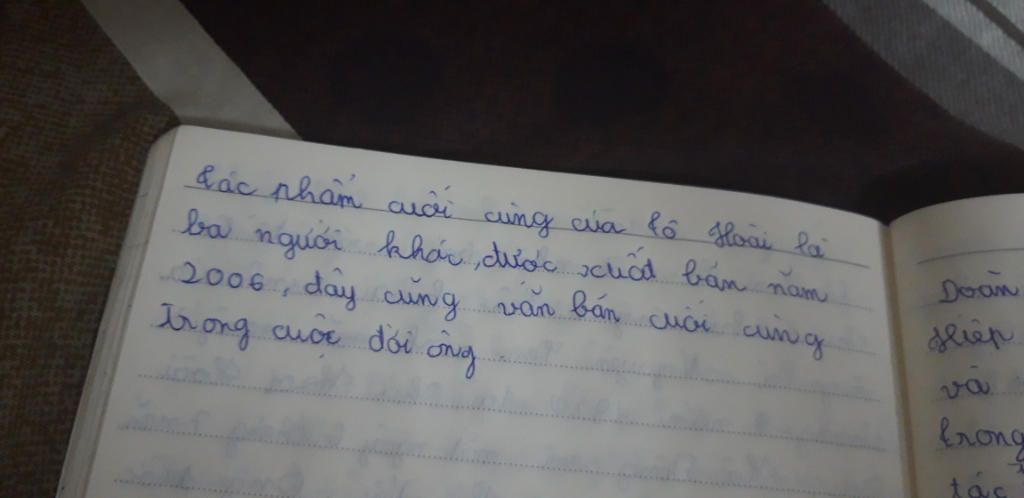 Tác phẩm cuối cùng của Tô Hoài là
ba người khác, được xuất bản năm
2006, đây cũng văn bản cuối cùng
Trong cuộc đời ông.
Doãn
Hiệp
và
trong
tác